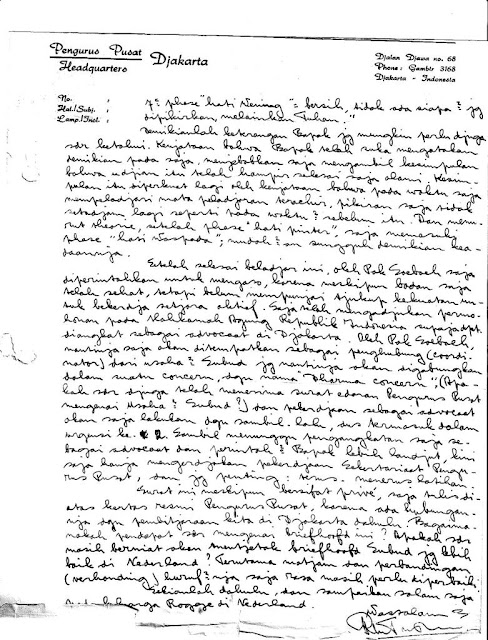 Pengurus Pusat
Headquarters
Djakarta
Djalan Djawa no. 68
Phone: Gambir 3168
Djakarta - Indonesia
No. :
Hal./Subj. :
Lamp./Incl. :
7e phase "hati wening" = bersih, tidak ada siapa2 jg
dipikirkan, melainkan Tuhan."
Demikianlah keterangan Bapak jg mungkin perlu djuga
sdr ketahui. Kenjataan bahwa Bapak telah suka mengatakan
demikian pada saja, menjebabkan saja mengambil kesimpulan
bahwa udjian itu telah hampir selesai saja alami. Kesim-
pulan itu diperkuat lagi oleh kenjataan bahwa pada waktu saja
mempeladjari mata peladjaran terachir, pikiran saja tidak
setadjam lagi seperti pada waktu2 sebelum itu. Dan menu-
rut theorie, setelah phase "hati pinter", saja memasuki
phase "hati waspada"; mudah2an sungguh demikian kea-
daannja.
Setelah selesai beladjar ini, oleh Pak Soebuh saja
diperintahkan untuk mengaso, karena meskipun badan saja
telah sehat, tetapi belum mempunjai tjukup kekuatan un-
tuk bekerdja setjara aktief. Saja telah mengadjukan permo-
honan pada Mahkamah Agung Republik Indonesia supaja dpt.
diangkat sebagai advocaat di Djakarta. Oleh Pak Soebuh,
nantinja saja akan ditempatkan sebagai penghubung (coordi-
nator) dari usaha2 Subud jg nantinja akan digabungkan
dalam suatu concern, dgn nama "Dharma concern", (Apa-
kah sdr djuga telah menerima surat edaran Pengurus Pusat
mengenai Usaha2 Subud?) dan pekerdjaan sebagai advocaat
akan saja lakukan dgn sambil-lalu, dus termasuk dalam
urusan ke 2. Sambil menunggu pengangkatan saja se-
bagai advocaat dan perintah2 Bapak lebih landjut, kini
saja hanja mengerdjakan pekerdjaan Sekertariaat Pengu-
rus Pusat, dan jg penting: terus-menerus latihan.
Surat ini meskipun bersifat privé, saja tulis di-
atas kertas resmi Pengurus Pusat, karena ada hubungan-
nja dgn pembitjaraan kita di Djakarta dahulu. Bagaima-
nakah pendapat sdr mengenai briefhoofd ini? Apakah sdr
masih berniat akan mentjetak briefhoofd Subud jg lebih
baik di Nederland? Terutama matjam dan perbandingan
(verhouding) huruf2nja saja rasa masih perlu diperbaiki.
Sekianlah dahulu, dan sampaikan salam saja
keluarga di Nederland.
Wassalam